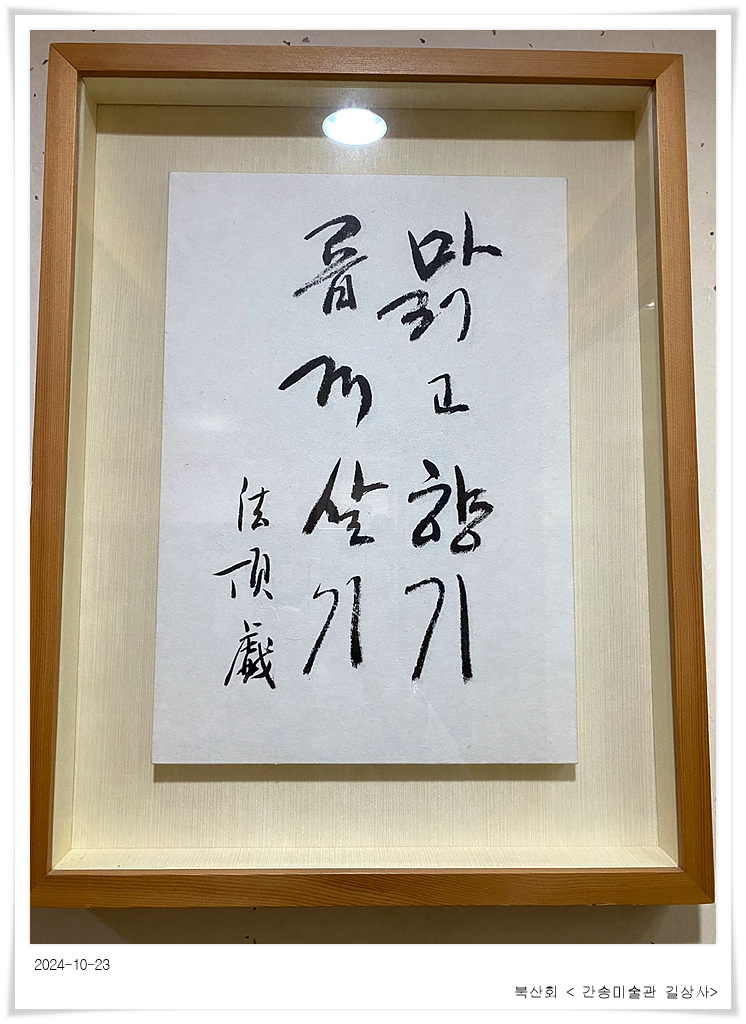 맑고 향기
롭게 살기
法頂戱
2024-10-23
북산회 < 간송미술관 길상사>